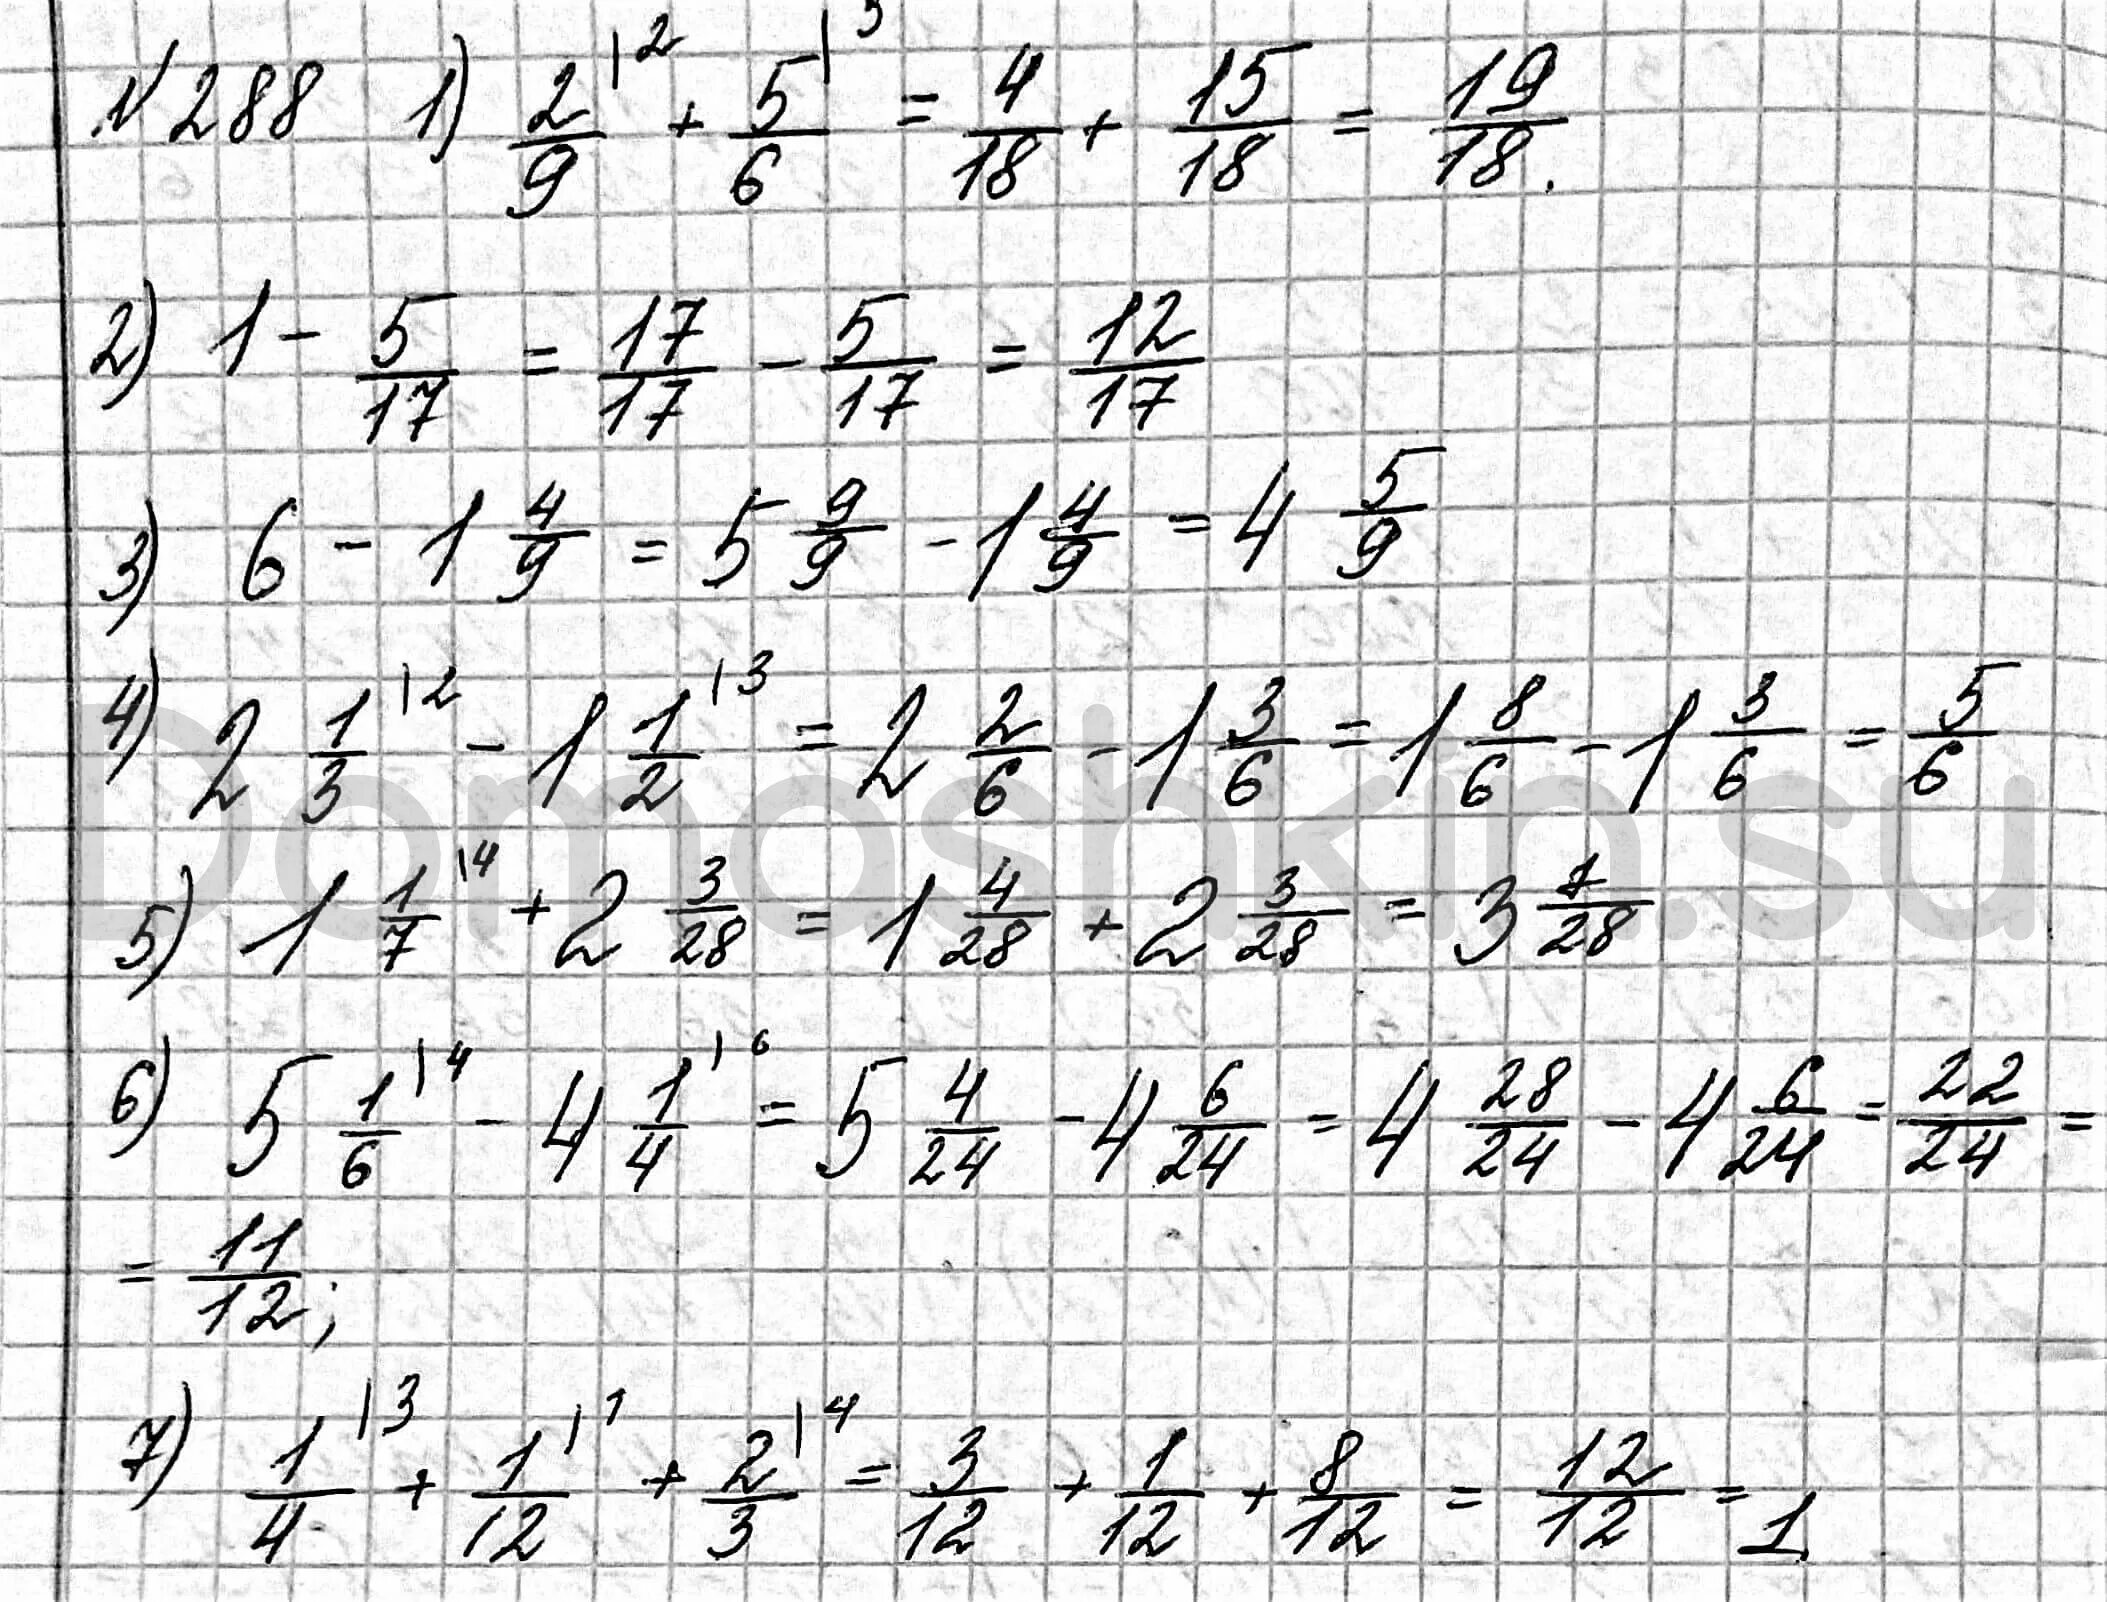 №288 1) 2/9 |2 + 5/6 |3 = 4/18 + 15/18 = 19/18.
2) 1 - 5/17 = 17/17 - 5/17 = 12/17
3) 6 - 1 4/9 = 5 9/9 - 1 4/9 = 4 5/9
4) 2 1/3 |2 - 1 1/2 |3 = 2 2/6 - 1 3/6 = 1 8/6 - 1 3/6 = 5/6
Domoshkin.su
5) 1 1/7 |4 + 2 3/28 = 1 4/28 + 2 3/28 = 3 7/28
6) 5 1/6 |4 - 4 1/4 |6 = 5 4/24 - 4 6/24 = 4 28/24 - 4 6/24 = 22/24 =
= 11/12;
7) 1/4 |3 + 1/12 |1 + 2/3 |4 = 3/12 + 1/12 + 8/12 = 12/12 = 1.